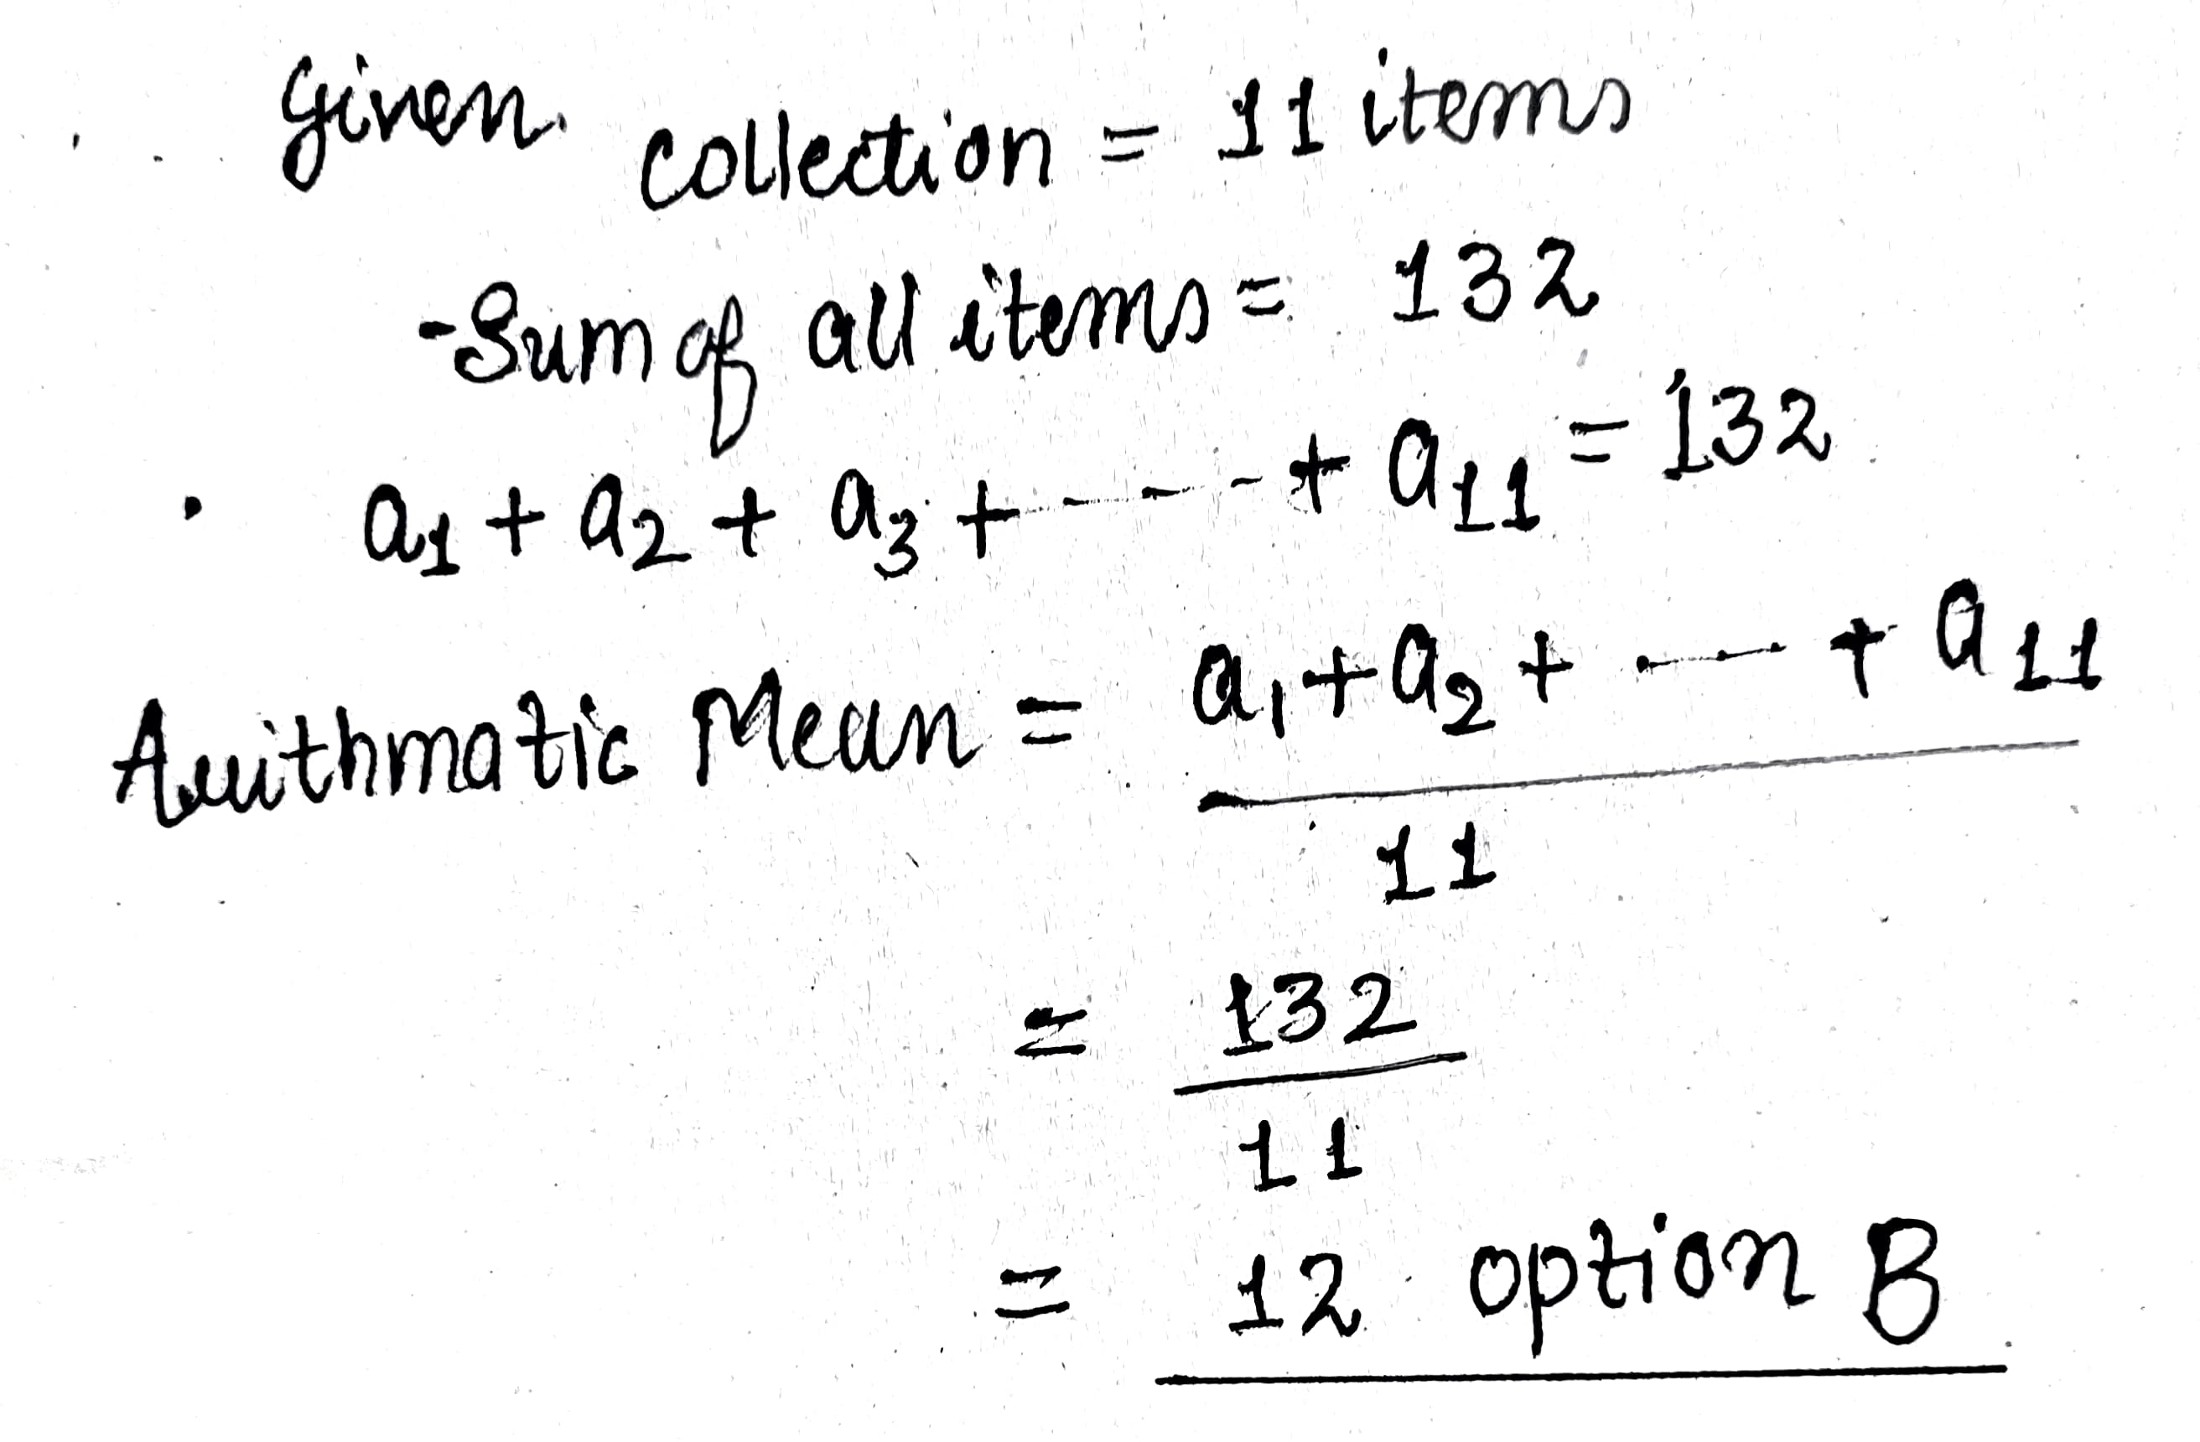 Given. collection = 11 items
-Sum of all items = 132
a₁ + a₂ + a₃ + ----+ a₁₁ = 132
Arithmatic Mean = a₁+a₂+ ---- + a₁₁
11
= 132
11
= 12 option B